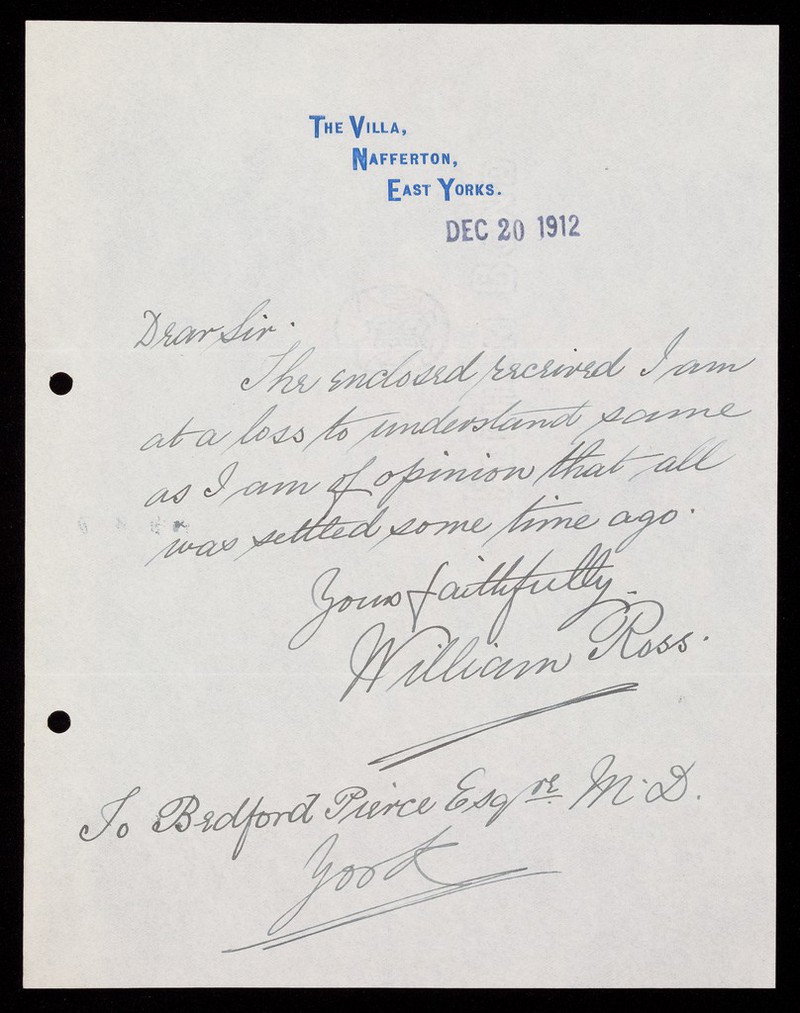 THE VILLA,
NAFFERTON,
EAST YORKS.
DEC 20 1912
Dear Sir.
The enclosed received I am
at a loss to understand same
as I am of opinion that all
was settled some time ago.
Yours faithfully.
William Ross.
To Bedford Pierce Esqre M.D.
York